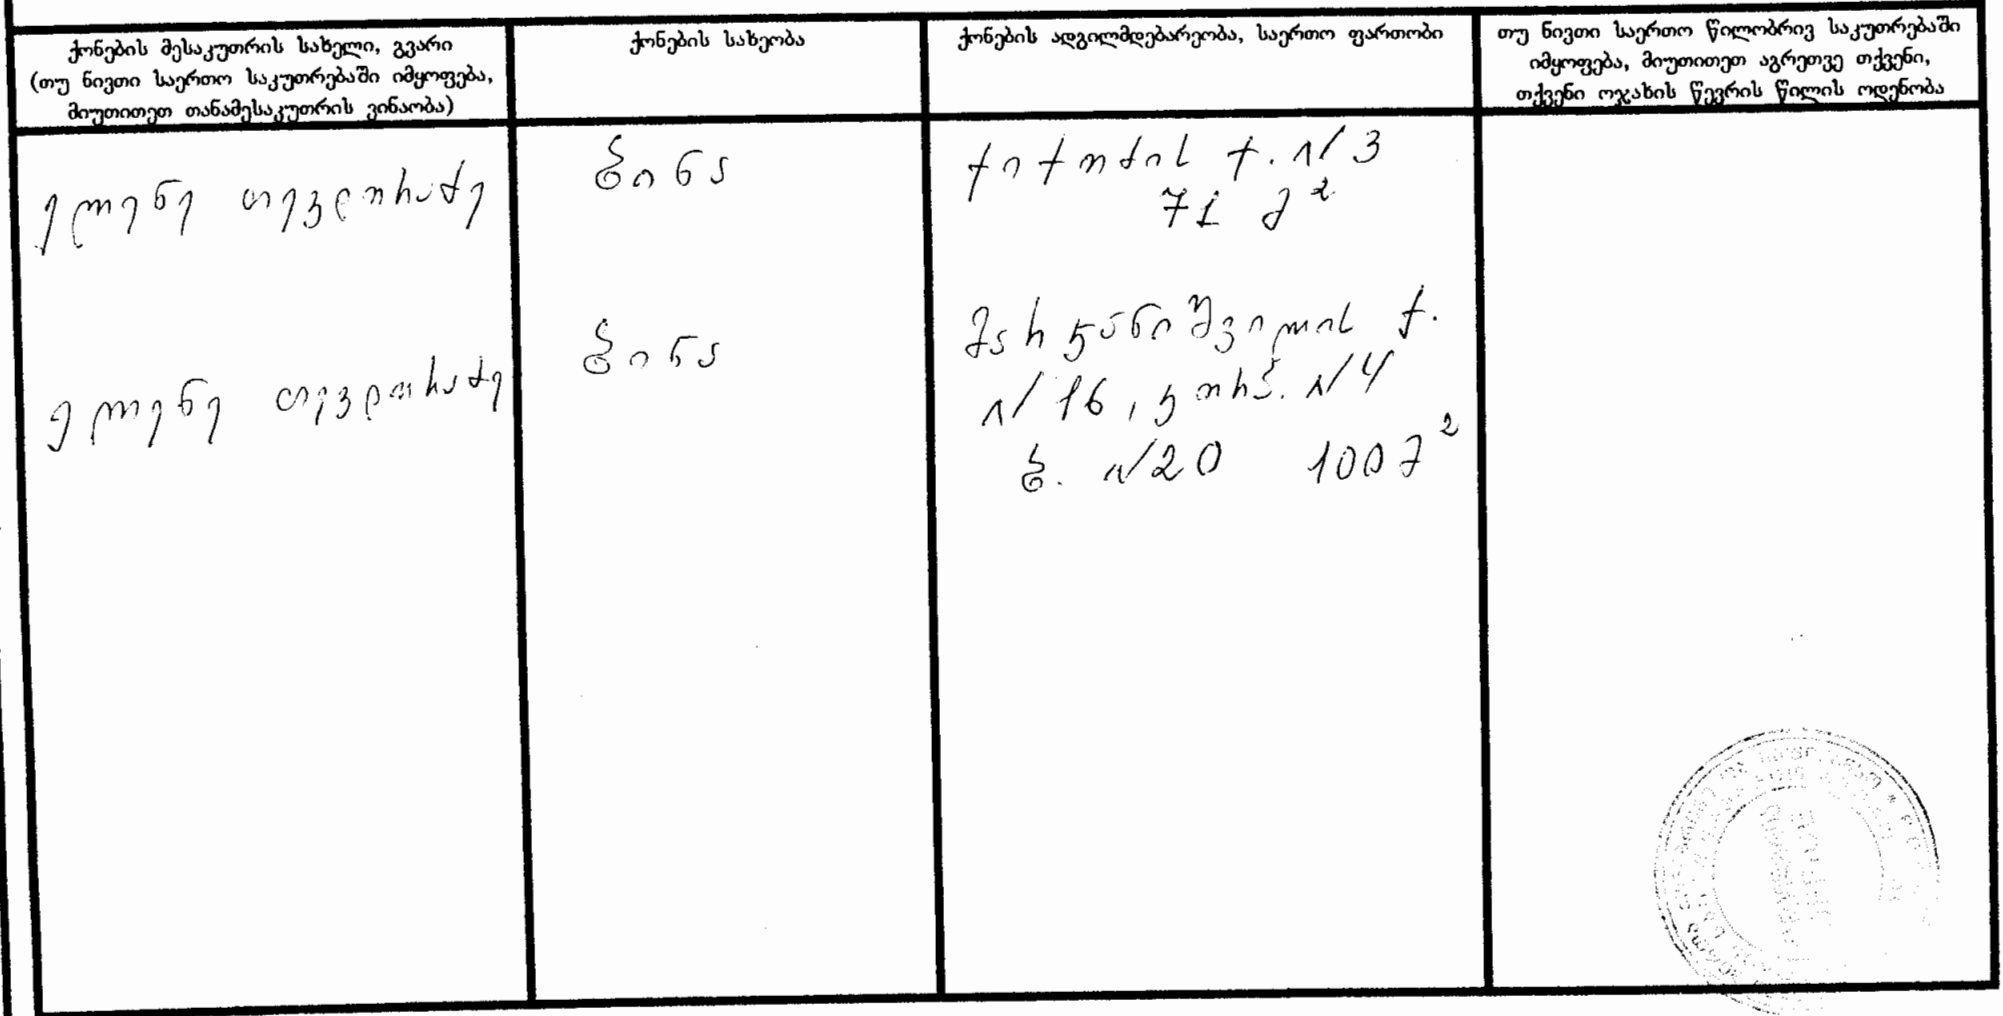 ქონების მესაკუთრის სახელი, გვარი
(თუ ნივთი საერთო საკუთრებაში იმყოფება,
მიუთითეთ თანამესაკუთრის ვინაობა)
ქონების სახეობა
ქონების ადგილმდებარეობა, საერთო ფართობი
თუ ნივთი საერთო წილობრივ საკუთრებაში
იმყოფება, მიუთითეთ აგრეთვე თქვენი,
თქვენი ოჯახის წევრის წილის ოდენობა
ელენე თევდორაძე
ბინა
ქიქოძის ქ. N 3
71 მ²
ელენე თევდორაძე
ბინა
მარჯანიშვილის ქ.
N 16, კორპ. N 4
ბ. N 20 100 მ²